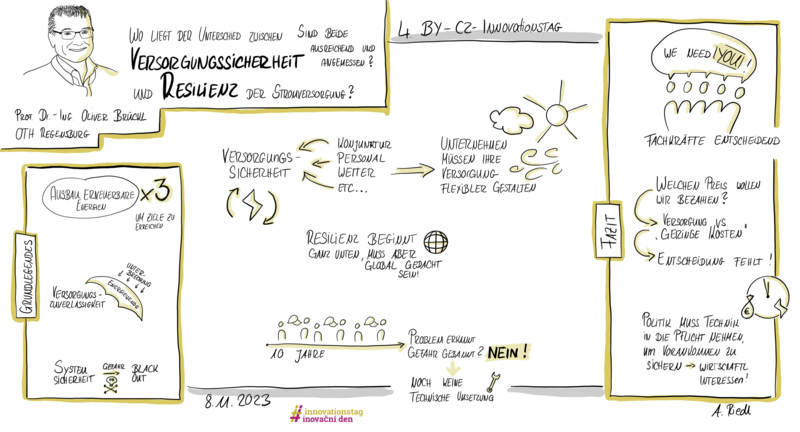 WO LIEGT DER UNTERSCHIED ZWISCHEN
VERSORGUNGSSICHERHEIT
UND RESILIENZ DER STROMVERSORGUNG?
SIND BEIDE
AUSREICHEND UND
ANGEMESSEN?
PROF. DR.-ING OLIVER BRÜCKL
OTH REGENSBURG
4. BY-CZ-INNOVATIONSTAG
GRUNDLEGENDES
AUSBAU ERNEUERBARE
ENERGIEN
x3
UM ZIELE ZU
ERREICHEN
UNTER-
BRECHUNG
VERSORGUNGS-
ZUVERLÄSSIGKEIT
SYSTEM
SICHERHEIT
GEFAHR
BLACK
OUT
VERSORGUNGS-
SICHERHEIT
KONJUNKTUR
PERSONAL
WETTER
ETC...
UNTERNEHMEN
MÜSSEN IHRE
VERSORGUNG
FLEXIBLER GESTALTEN
RESILIENZ BEGINNT
GANZ UNTEN, MUSS ABER
GLOBAL GEDACHT
SEIN!
10 JAHRE
PROBLEM ERKANNT
GEFAHR GEBANNT? NEIN!
NOCH KEINE
TECHNISCHE UMSETZUNG
FAZIT
WE NEED YOU!
FACHKRÄFTE ENTSCHEIDEND
WELCHEN PREIS WOLLEN
WIR BEZAHLEN?
VERSORGUNG VS
„GERINGE KOSTEN"
ENTSCHEIDUNG FEHLT!
€
POLITIK MUSS TECHNIK
IN DIE PFLICHT NEHMEN,
UM VORANKOMMEN ZU
SICHERN → WIRTSCHAFTL.
INTERESSEN!
8.11.2023
#innovationstag
inovační den
A. Riedl